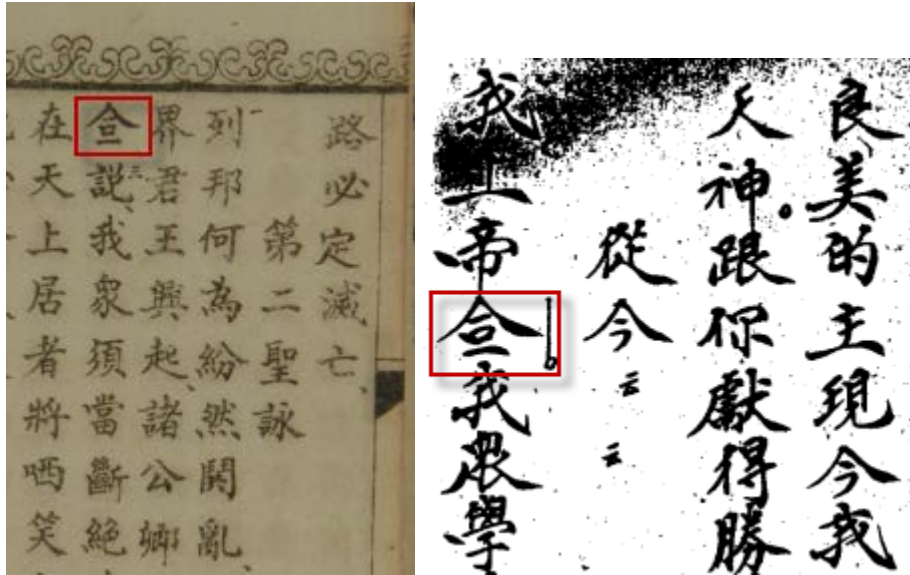 路必定滅亡、
第二聖詠
一列邦何為紛然鬨亂、
界君王興起、諸公卿
三說、我眾須當斷絕
在天上居者將哂笑
良美的主現今我
天神。跟你獻得勝
從今云云
我上帝。我眾學